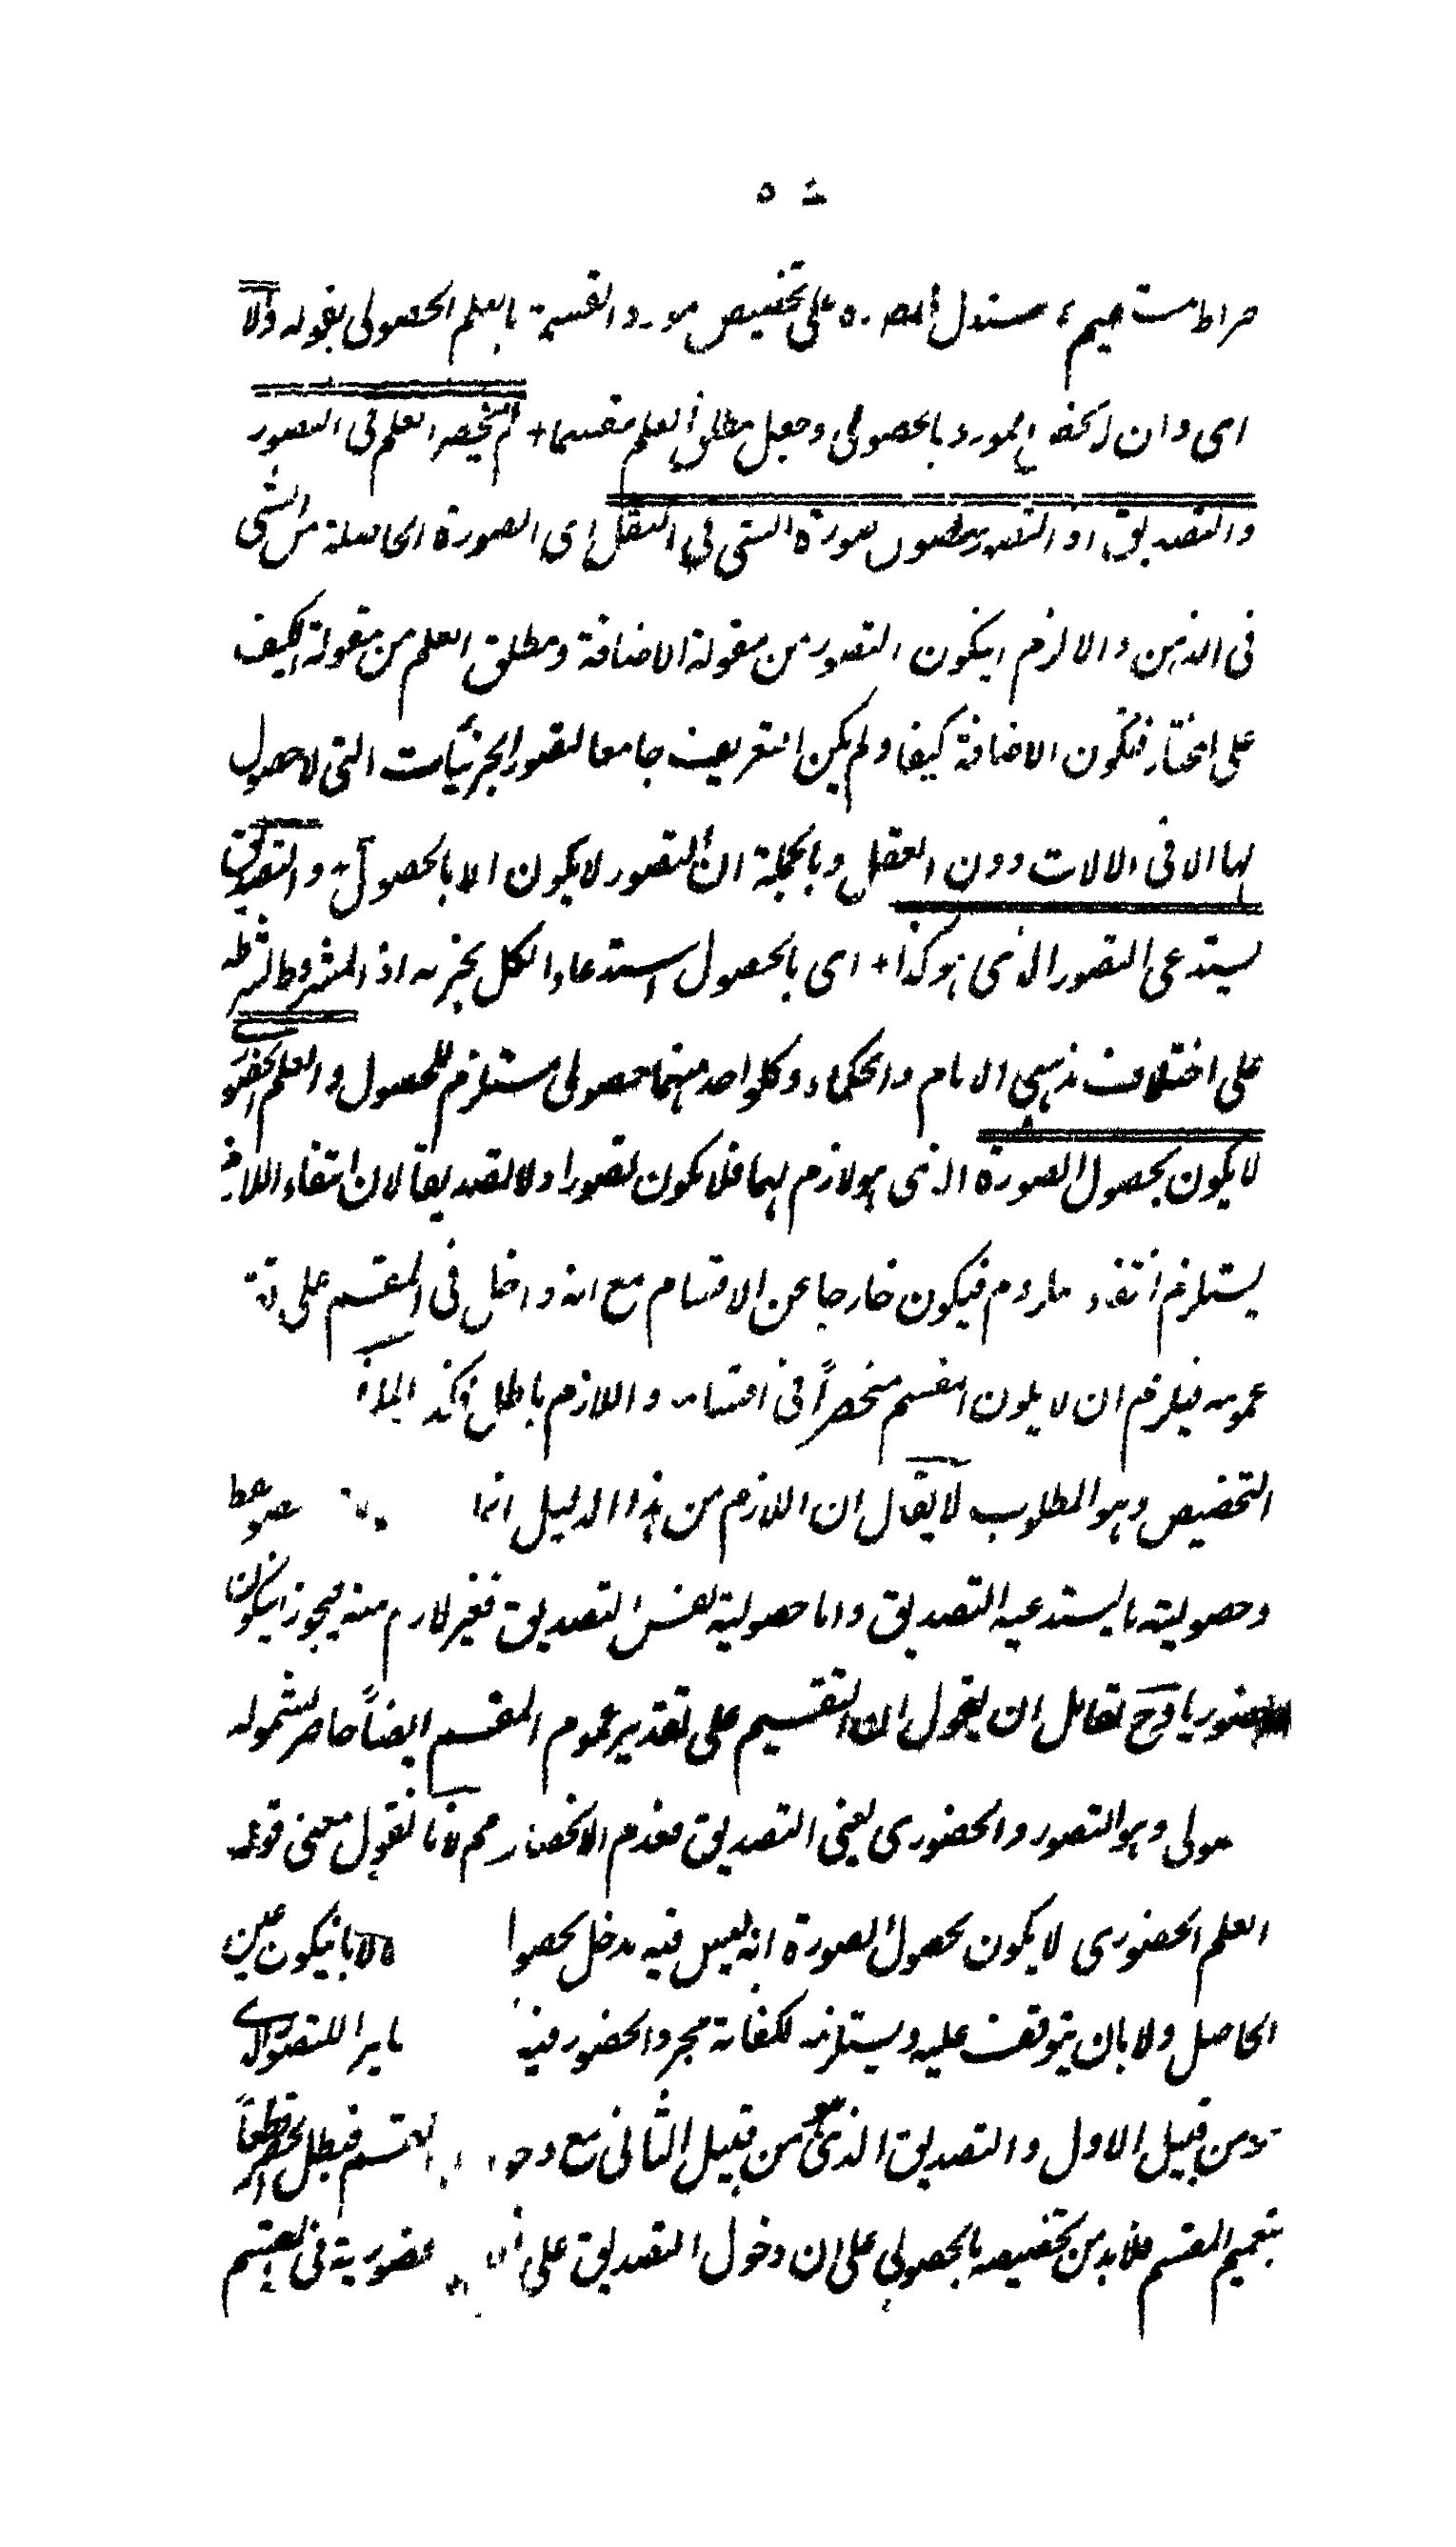 صراط مستقيم ثم استدل المصـ ره على تخصيص مورد القسمة بالعلم الحصولى بقوله والا
اى وان لم يخص المورد بالحصولى وجعل مطلق العلم مقسما + لم ينحصر العلم فى التصور
والتصديق اذ التصور حصول صورة الشى فى العقل اى الصورة الحاصلة من الشى
فى الذهن والا لزم ان يكون التصور من مقولة الاضافة ومطلق العلم من مقولة الكيف
على المختار فتكون الاضافة كيفا ولم يكن التعريف جامعا لتصور الجزئيات التى لا حصول
لها الا فى الالات دون العقل وبالجملة ان التصور لا يكون الا بالحصول + والتصديق
يستدعى التصور الذى هو كذا + اى بالحصول استدعاء الكل بجزئه اذ المشروط لشرطه
على اختلاف مذهبى الامام والحكماء وكلواحد منهما حصولى مستلزم للحصول والعلم الحضورى
لا يكون بحصول الصورة الذى هو لازم لهما فلا يكون تصورا ولا تصديقا لان انتفاء اللازم
يستلزم انتفاء ملزوم فيكون خارجا عن الاقسام مع انه داخل فى المقسم على
عمومه فيلزم ان لا يكون المقسم منحصراً فى اقسامه واللازم باطل
التخصيص وهو المطلوب لا يقال ان اللازم من هذا الدليل انما
وحصولية ما يستدعيه التصديق واما حصولية نفس التصديق فغير لازم منه فيجوز انيكون
حضوريا وح لقائل ان يقول ان التقسيم على تقدير عموم المقسم ايضاً حاصر لشموله
حصولى وهو التصور والحضورى يعنى التصديق فعدم الانحصار مم لانا نقول معنى قوله
العلم الحضورى لا يكون بحصول الصورة انه ليس فيه مدخل بحصو لا بانيكون عين
الحاصل ولا بان يتوقف عليه ويستلزمه لكفاية مجرد الحضور فيه
من قبيل الاول والتصديق الذى هو من قبيل الثانى مع المقسم فبطل الحصر قطعاً
بتعميم المقسم فلا بد من تخصيصه بالحصولى على ان دخول التصديق على حضورية فى المقسم